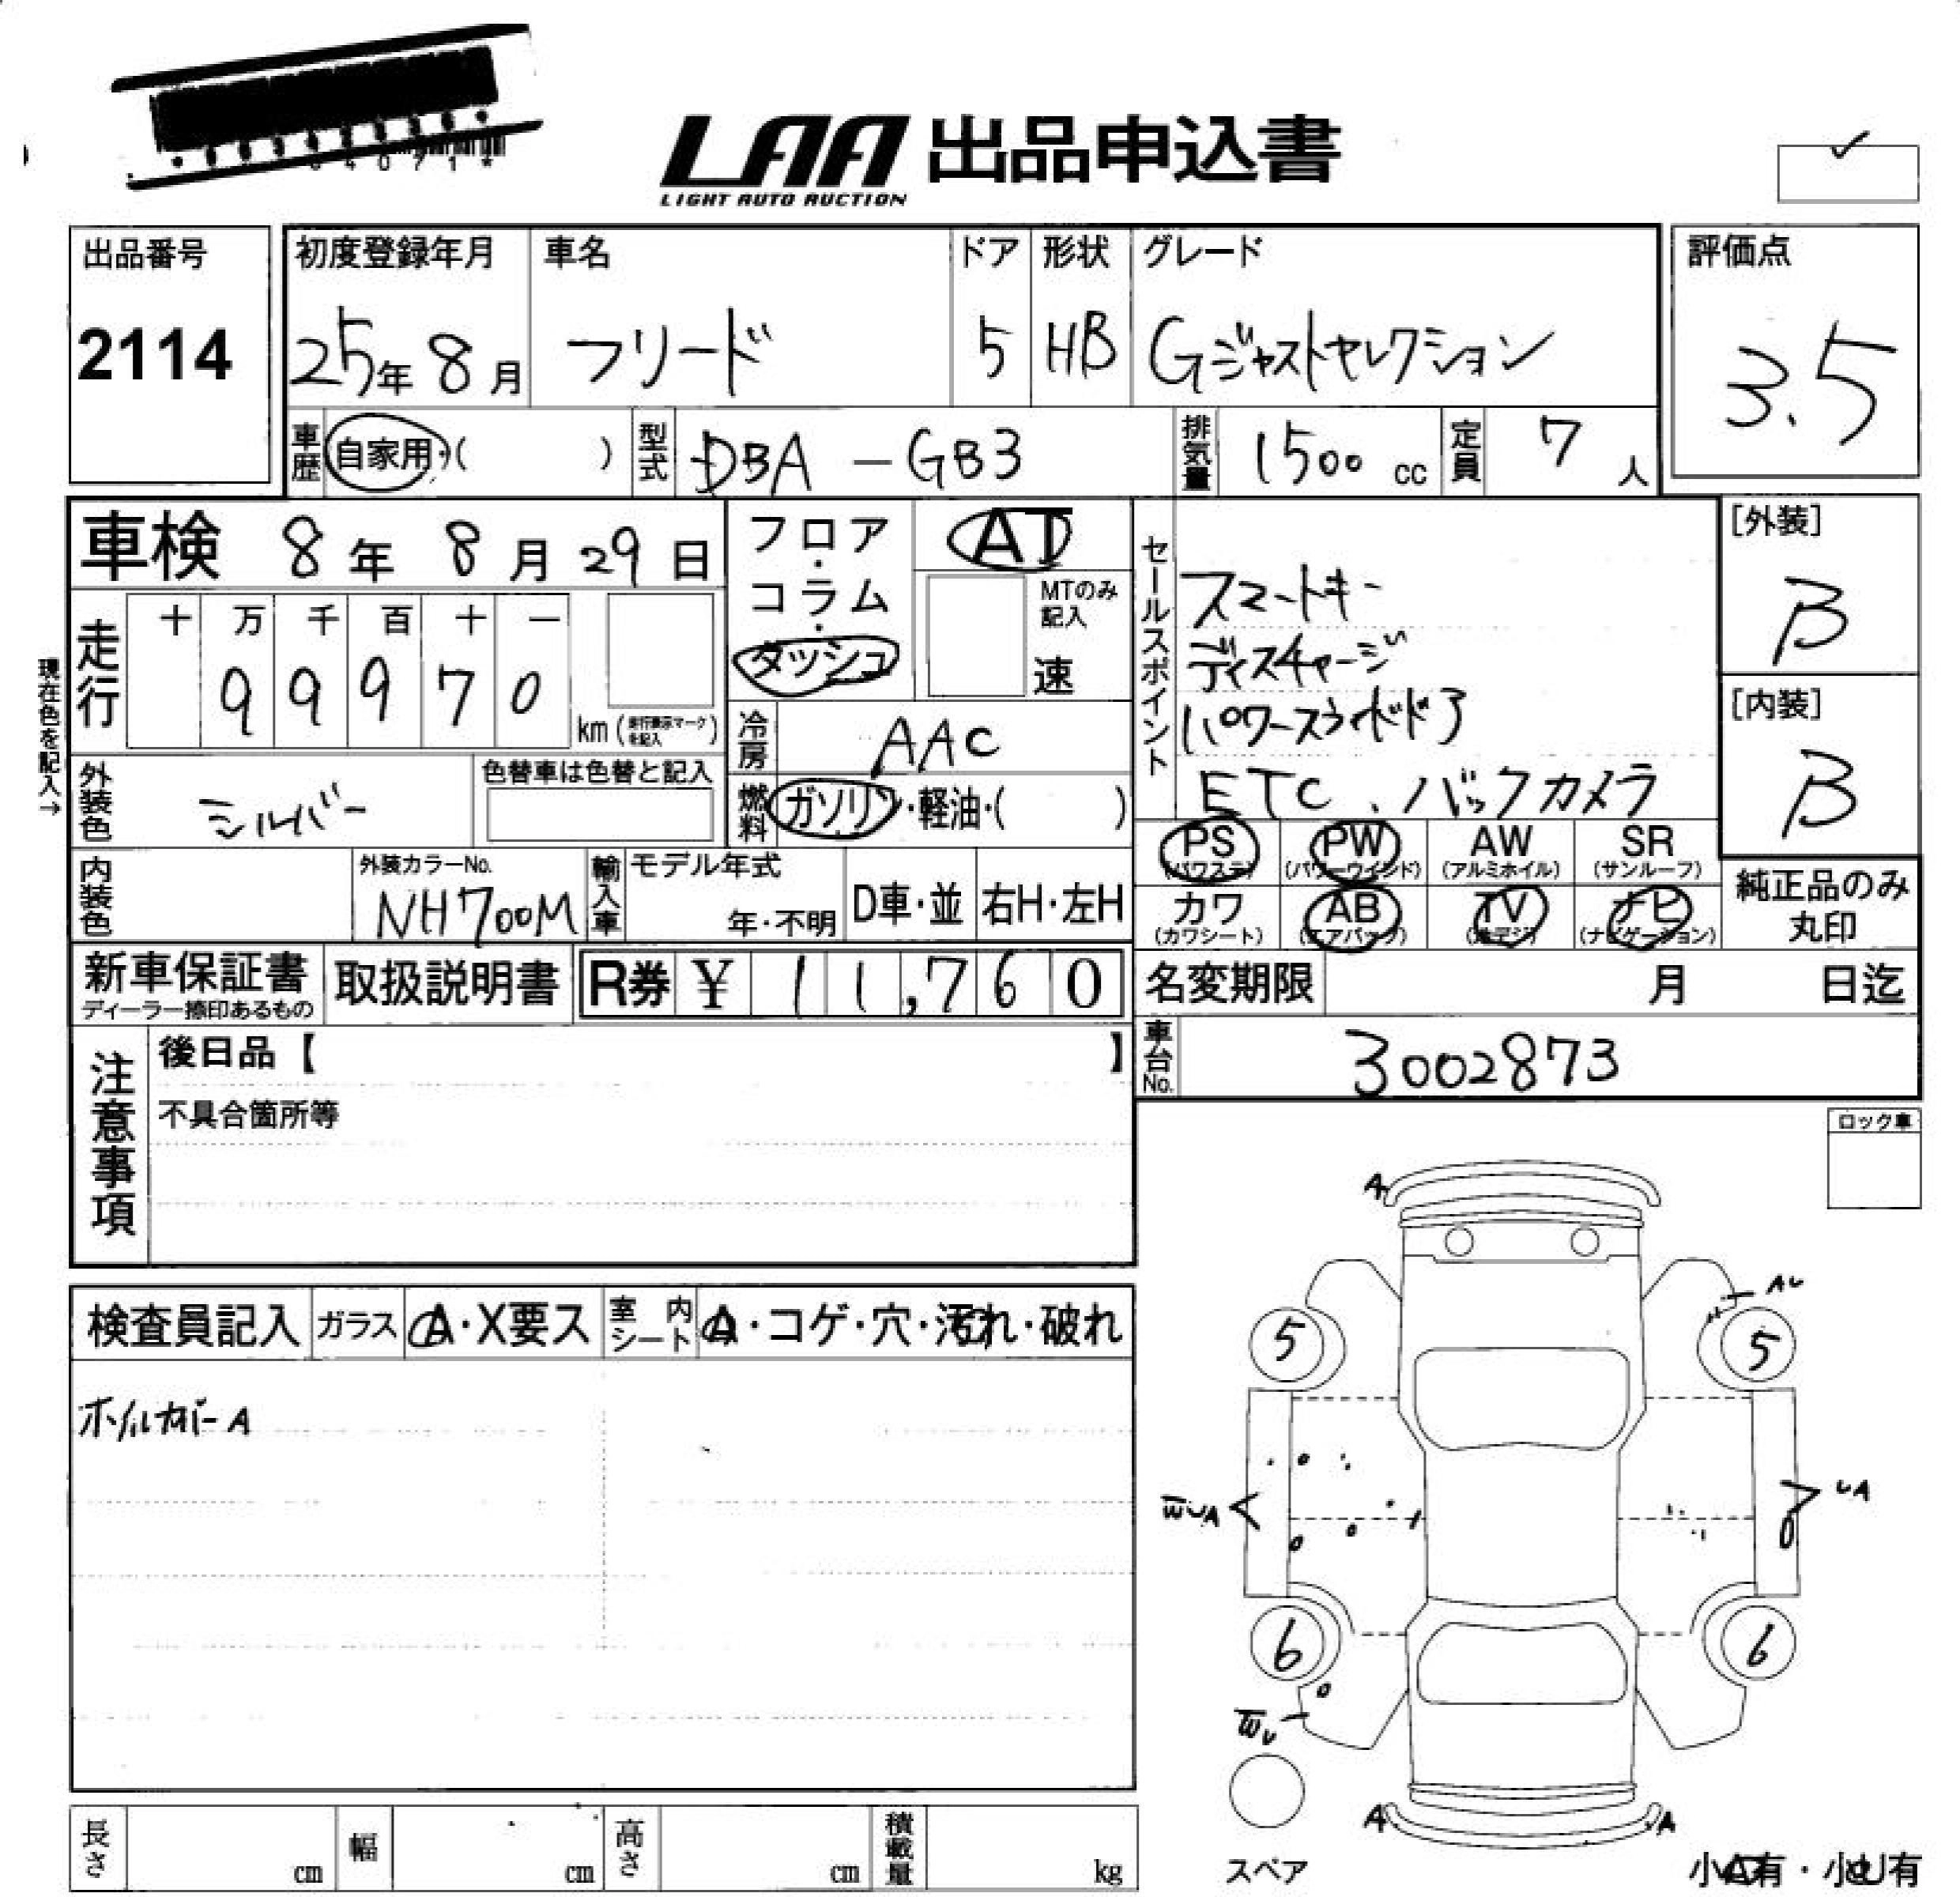 4071*
LAA 出品申込書
LIGHT AUTO AUCTION
出品番号
2114
初度登録年月
25年 8月
車名
フリード
ドア
5
形状
HB
グレード
Gジャストセレクション
評価点
3.5
車歴
自家用・( )
型式
DBA - GB3
排気量
1500 cc
定員
7 人
車検 8年 8月 29日
走行
十 万 千 百 十 一
9 9 9 7 0
km (走行表示マークを記入)
現在色を記入→
フロア・コラム・ダッシュ
AT
MTのみ記入
速
冷房
AAC
燃料
ガソリン・軽油・( )
セールスポイント
スマートキー
ディスチャージ
パワースライドドア
ETC、バックカメラ
[外装]
B
[内装]
B
外装色
シルバー
色替車は色替と記入
内装色
外装カラーNo.
NH700M
輸入車
モデル年式
年・不明
D車・並
右H・左H
PS (パワステ)
PW (パワーウインド)
AW (アルミホイル)
SR (サンルーフ)
カワ (カワシート)
AB (エアバック)
TV (地デジ)
ナビ (ナビゲーション)
純正品のみ
丸印
新車保証書
ディーラー捺印あるもの
取扱説明書
R券 ¥ 11,760
名変期限 月 日迄
車台No.
3002873
注意事項
後日品【 】
不具合箇所等
ロック車
検査員記入
ガラス
A・X要ス
室内シート
A・コゲ・穴・汚れ・破れ
ホイルカバーA
A
AU
5
5
UA
6
6
A
A
スペア
小A有・小U有
長さ cm
幅 cm
高さ cm
積載量 kg